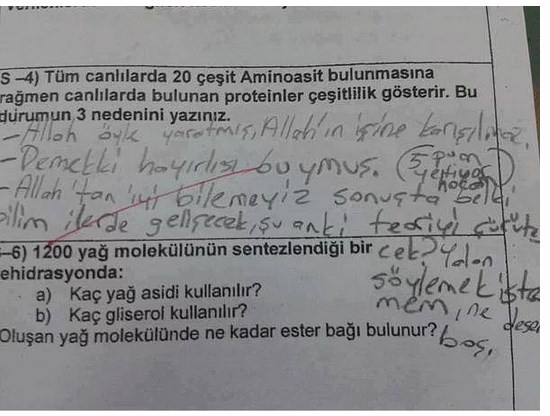 S –4) Tüm canlılarda 20 çeşit Aminoasit bulunmasına
rağmen canlılarda bulunan proteinler çeşitlilik gösterir. Bu
durumun 3 nedenini yazınız.
- Allah öyle yaratmış, Allah'ın işine karışılmaz.
- Demekki hayırlısı buymuş. (5 puan yetiyor hocam)
- Allah'tan iyi bilemeyiz sonuçta belki
bilim ilerde gelişecek, şu anki teoriyi çürüte
cek? Yalan
söylemek iste
mem, ne desem
boş.
–6) 1200 yağ molekülünün sentezlendiği bir
ehidrasyonda:
a) Kaç yağ asidi kullanılır?
b) Kaç gliserol kullanılır?
Oluşan yağ molekülünde ne kadar ester bağı bulunur?